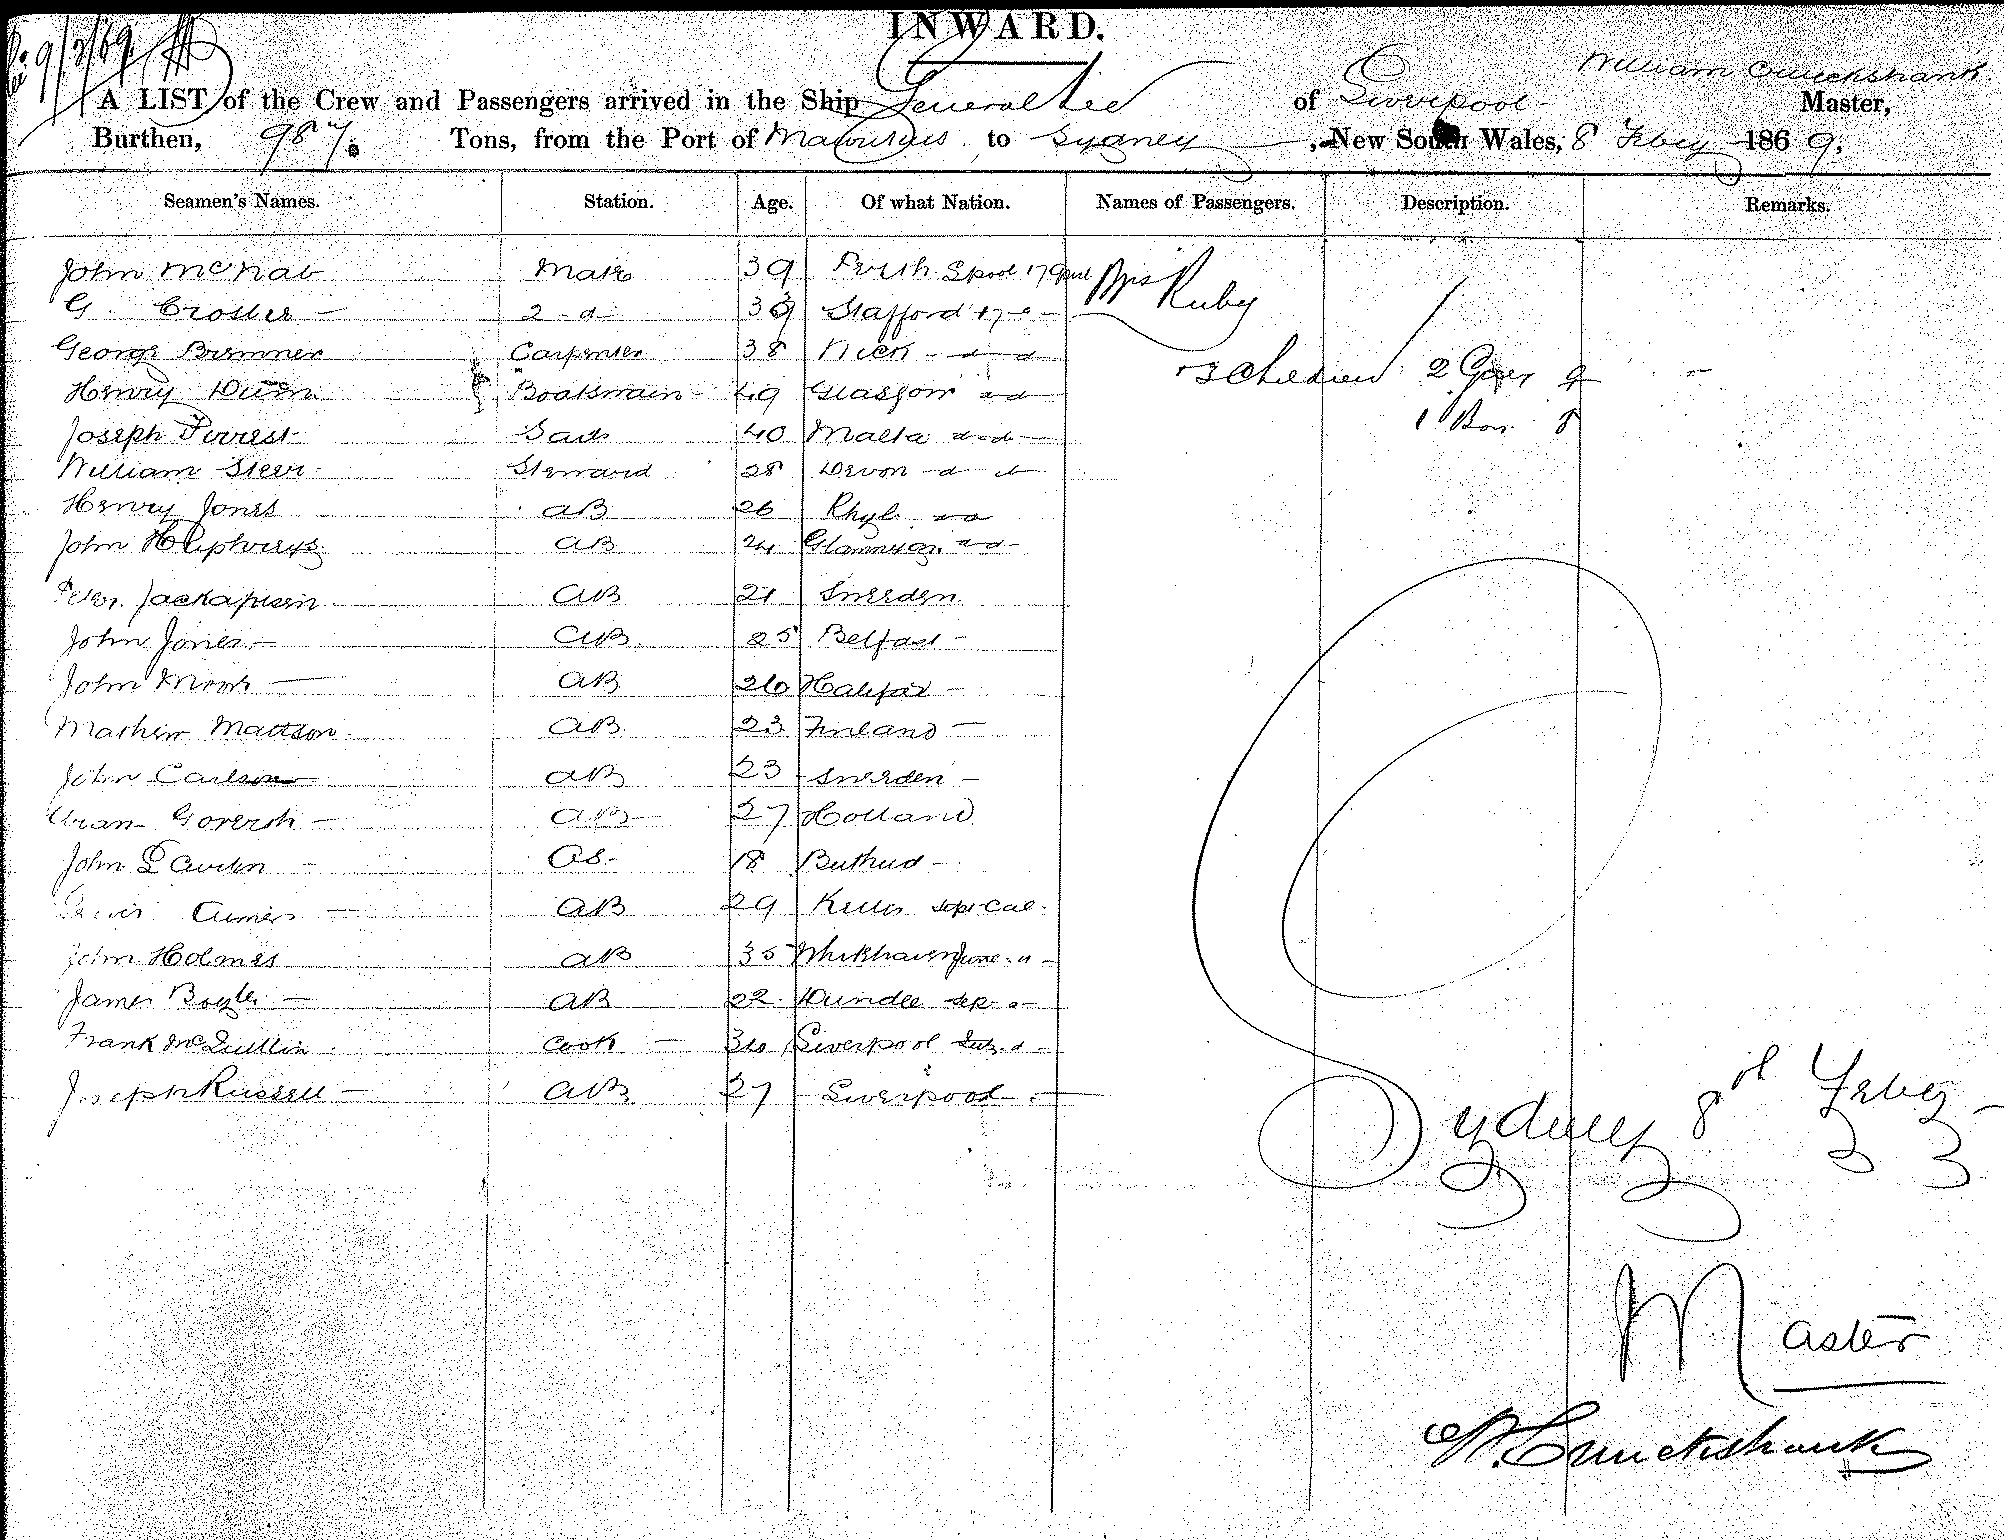 9/2/69
INWARD.
William Cruickshank
A LIST of the Crew and Passengers arrived in the Ship General Lee of Liverpool Master,
Burthen, 987 Tons, from the Port of Mauritius to Sydney, New South Wales, 8 Feby 1869.
Seamen's Names. Station. Age. Of what Nation. Names of Passengers. Description. Remarks.
John McNab Mate 39 Perth Mrs Ruby
G. 2 d 39 Stafford
George Bremner Carpenter 38 Wick d d 3 Children 2 9
Henry Boatswain 49 Glasgow d d 1 Boy 8
Joseph Forrest Sails 40 Malta d d
William Steer Steward 28 Devon d d
Henry Jones AB 26 Rhyl d d
John Humphreys AB 24 d d
Peter AB 21 Sweeden
John Jones AB 25 Belfast
John AB 26 Halifax
Mathew Mattson AB 23 Finland
John Carlson AB 23 Sweeden
AB 27 Holland
John OS 18
AB 29
John Holmes AB 35 Whitehaven June
James AB 22 Dundee Sep
Frank McQuillin Cook Liverpool
Joseph Russell AB 27 Liverpool
Sydney 8th Feby
Master
W. Cruickshank